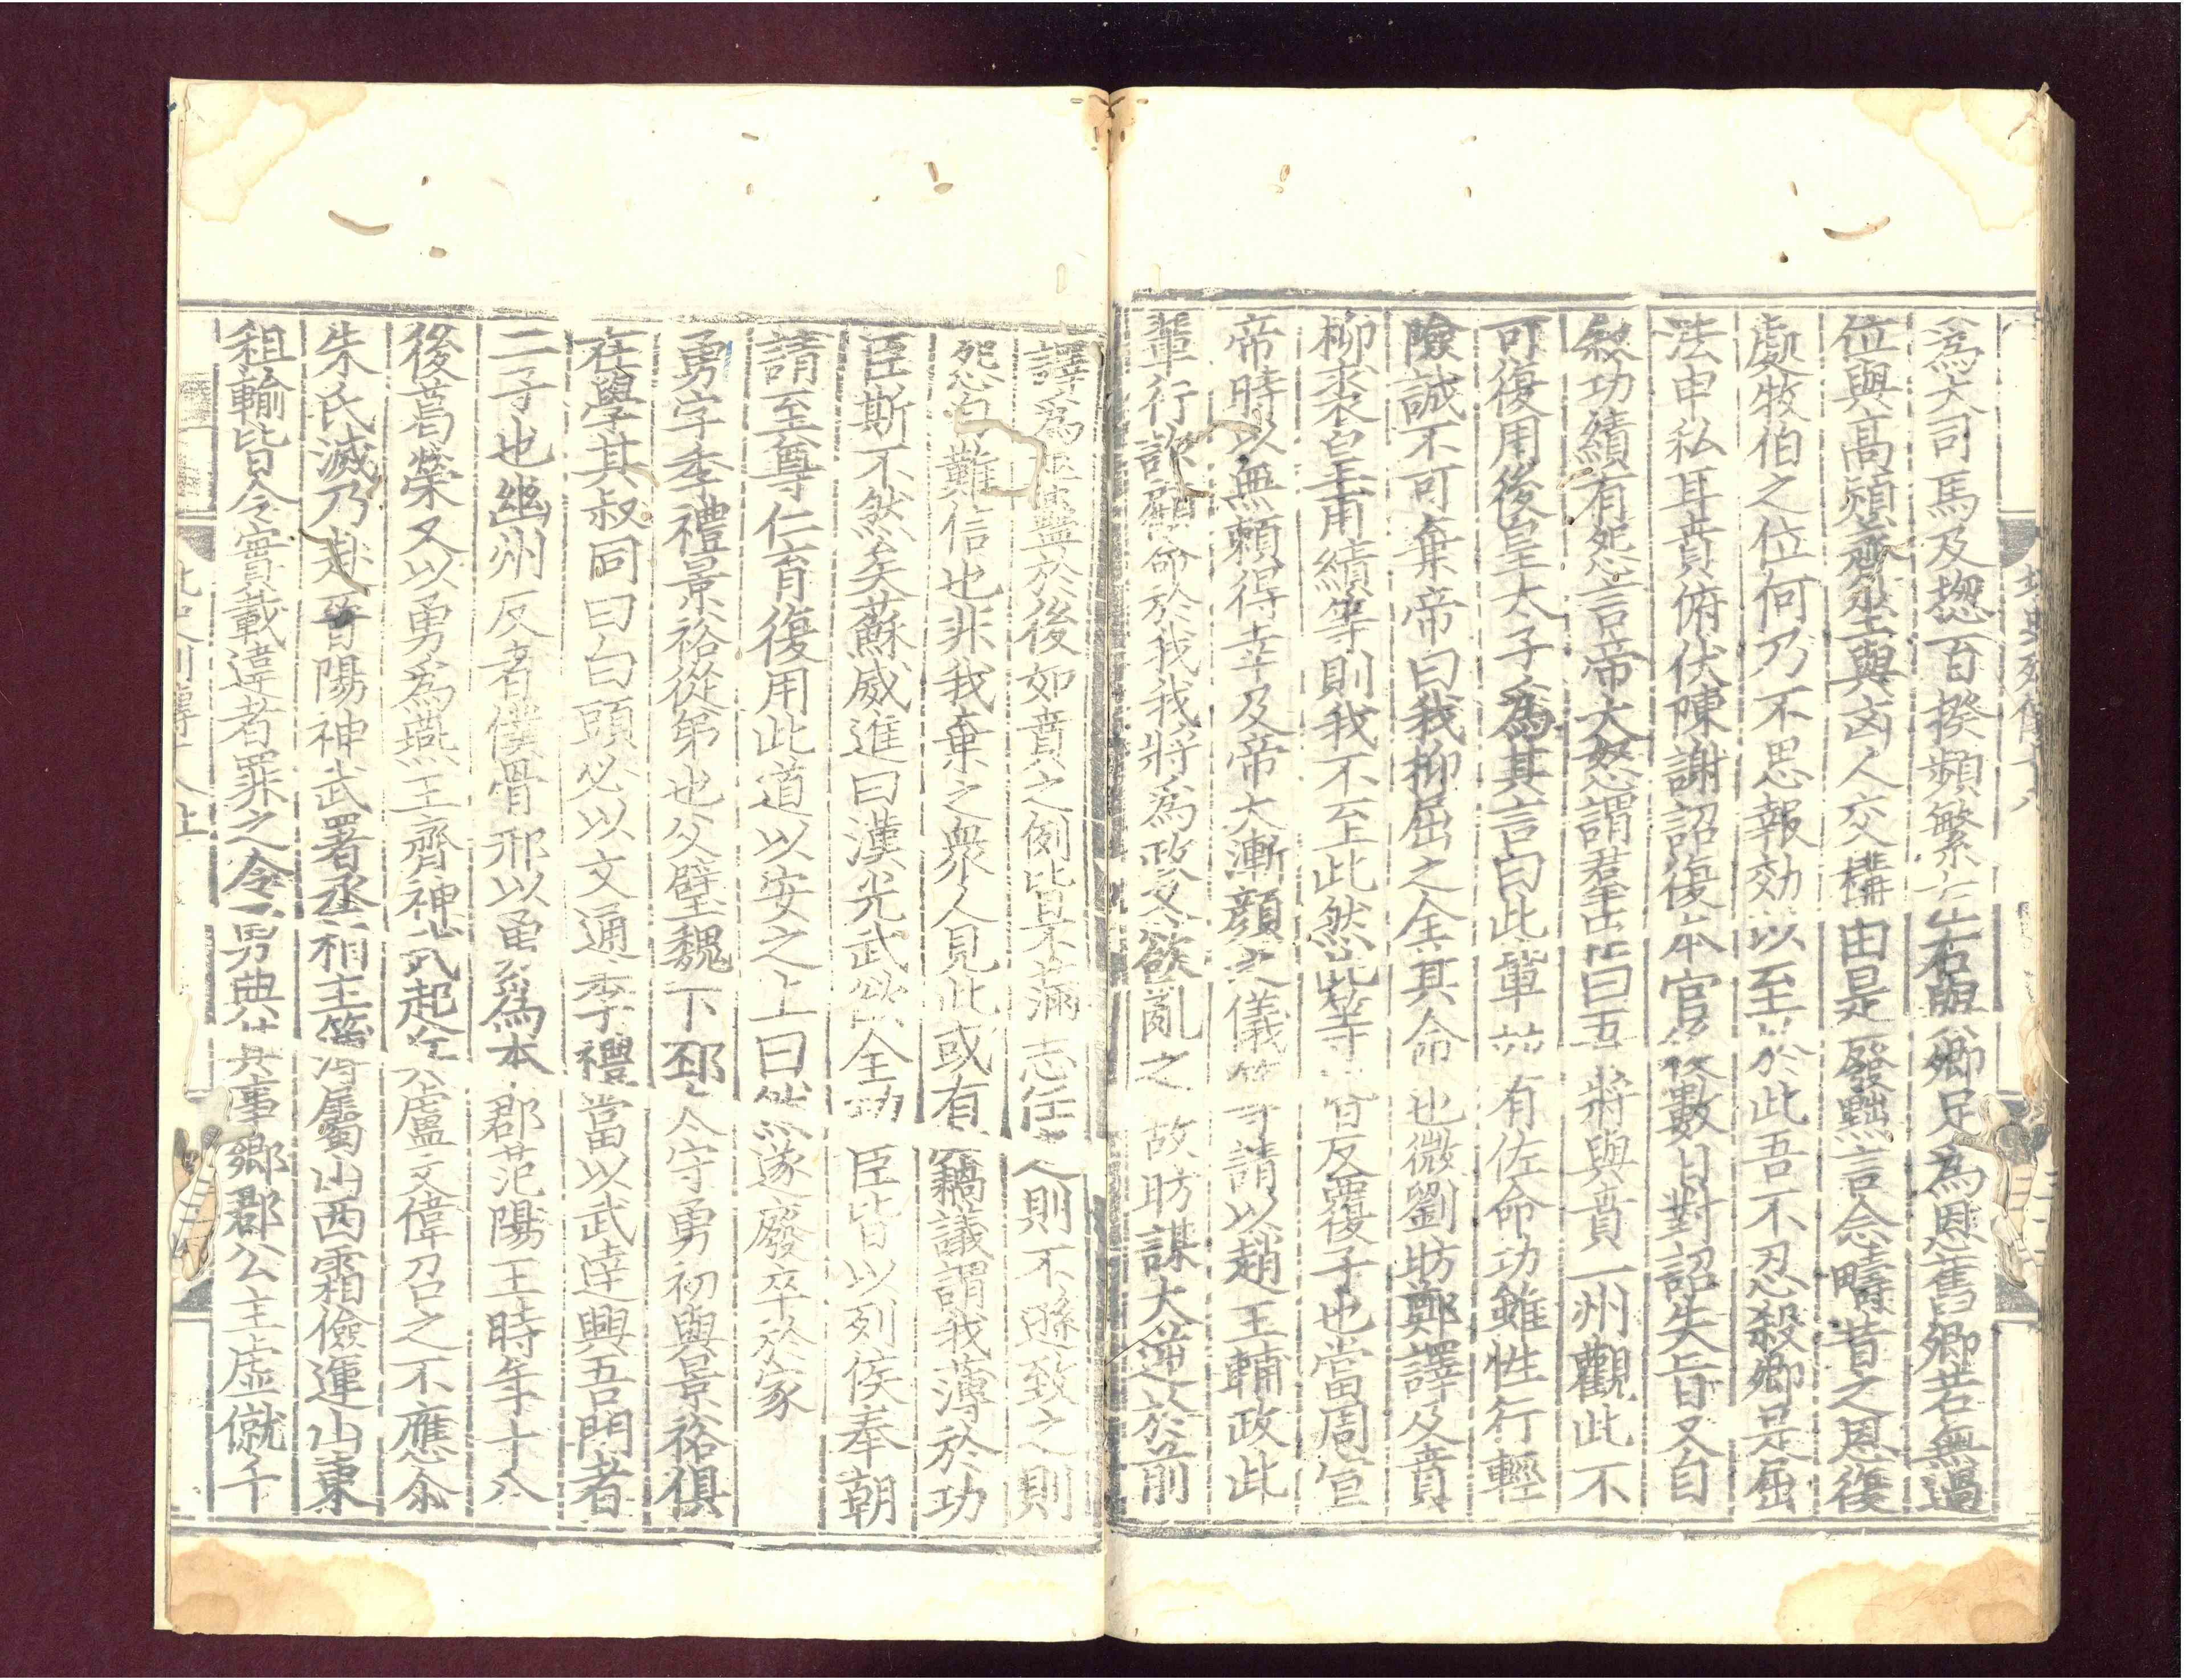 爲大司馬及揔百揆頻繁左右與卿足爲恩舊卿若無過
位與高熲齊坐與凶人交構由是廢黜言念疇昔之恩復
處牧伯之位何乃不思報効以至於此吾不忍殺卿是屈
法申私耳賁俯伏陳謝詔復本官後數日對詔失旨又自
叙功績有怨言帝大怒謂羣臣曰吾將與賁一州觀此不
可復用後皇太子爲其言曰此輩並有佐命功雖性行輕
險誠不可棄帝曰我抑屈之全其命也微劉昉鄭譯及賁
柳裘皇甫績等則我不至此然此等皆反覆子也當周宣
帝時以無賴得幸及帝大漸顔之儀等請以趙王輔政此
輩行詐顧命於我我將爲政又欲亂之故昉謀大逆於前
譯爲巫蠱於後如賁之例皆不滿志任之則不遜致之則
怨自難信也非我棄之衆人見此或有竊議謂我薄於功
臣斯不然矣蘇威進曰漢光武欲全功臣皆以列侯奉朝
請至尊仁育復用此道以安之上曰然遂廢卒於家
勇字季禮景裕從弟也父璧魏下邳太守勇初與景裕俱
在學其叔同曰白頭必以文通季禮當以武達興吾門者
二子也幽州反者僕骨邢以勇爲本郡范陽王時年十八
後葛榮又以勇爲燕王齊神武起兵盧文偉召之不應尒
朱氏滅乃赴晉陽神武署丞相主簿屬山西霜儉運山東
租輸皆令實載違者罪之令勇典其事鄉郡公主虛僦千
北史列傳十八